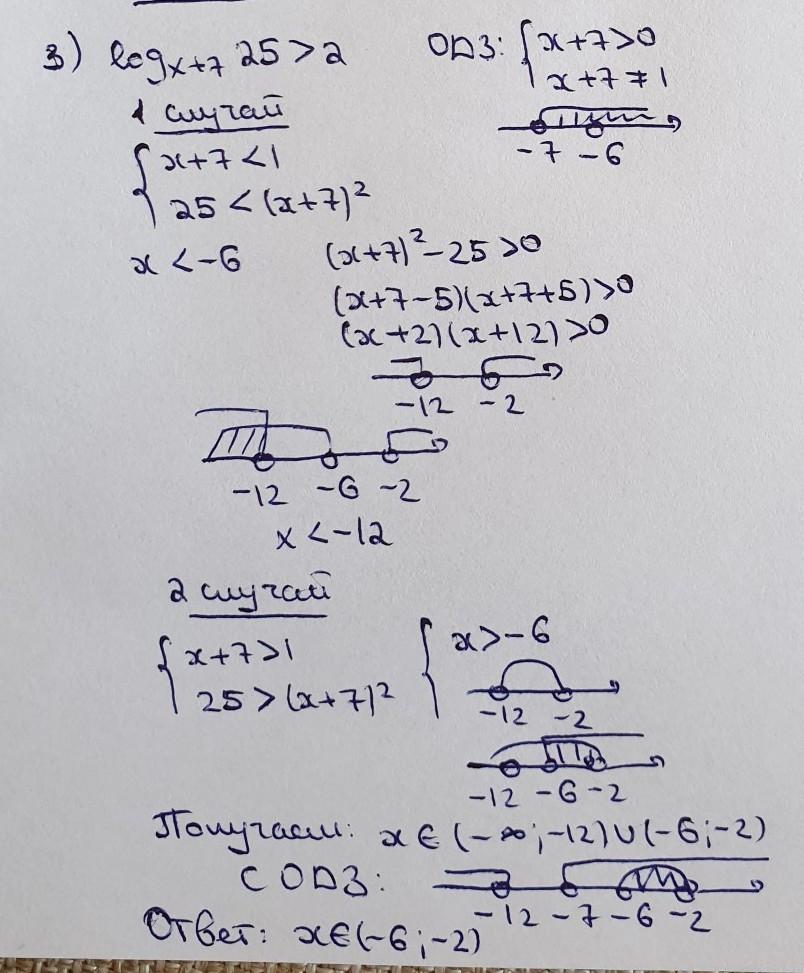 3) log_{x+7} 25 > 2 ОДЗ: { x+7>0
x+7 ≠ 1
1 случай
-7 -6
{ x+7 < 1
25 < (x+7)²
x < -6 (x+7)² - 25 > 0
(x+7-5)(x+7+5) > 0
(x+2)(x+12) > 0
-12 -2
-12 -6 -2
x < -12
2 случай
{ x+7 > 1 { x > -6
25 > (x+7)²
-12 -2
-12 -6 -2
Получаем: x ∈ (-∞; -12) ∪ (-6; -2)
С ОДЗ:
-12 -7 -6 -2
Ответ: x ∈ (-6; -2)